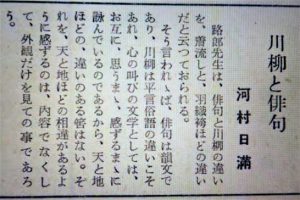 川柳と俳句
河村日満
路郎先生は、俳句と川柳の違い
を、着流しと、羽織袴ほどの違い
だと云つておられる。
そう言われゝば、俳句は韻文で
あり、川柳は平言俗語の違いこそ
あれ、心の叫びの文学としては、
お互に、思うまゝ、感ずるまゝに
詠んでいるのであるから、天と地
ほどの、違いのある筈はない。そ
れを、天と地ほどの相違があるよ
うに感ずるのは、内容でなくし
て、外観だけを見ての事であろ